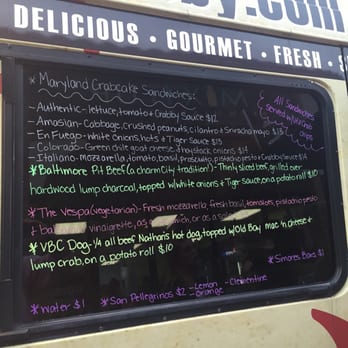 by.com
DELICIOUS • GOURMET • FRESH •
* Maryland Crabcake Sandwiches:
- Authentic - lettuce, tomato + Crabby Sauce $12
- Amasian - Cabbage, crushed peanuts, cilantro + Sriracha mayo $13
- En Fuego - white onions, hots + Tiger Sauce $13
- Colorado - Green chile goat cheese, + haystack onions $14
- Italiano - mozzarella, tomato, basil, prosciutto, pistachio pesto + Crabby Sauce $14
All Sandwiches served w/ Kettle chips
* Baltimore Pit Beef (a charm City tradition) - Thinly sliced beef, grilled over
hardwood lump charcoal, topped w/ white onions + Tiger Sauce, on a potato roll $10
* The Vespa (vegetarian) - Fresh mozzarella, fresh basil, tomatoes, pistachio pesto
+ vinaigrette, as a or as a
* VBC Dog - 1/4 all beef Nathan's hot dog, topped w/ Old Bay mac 'n cheese +
lump crab, on a potato roll $10
* Smores Bars $1
* Water $1 * San Pellegrinos $2 - Lemon - Clementine
- Orange